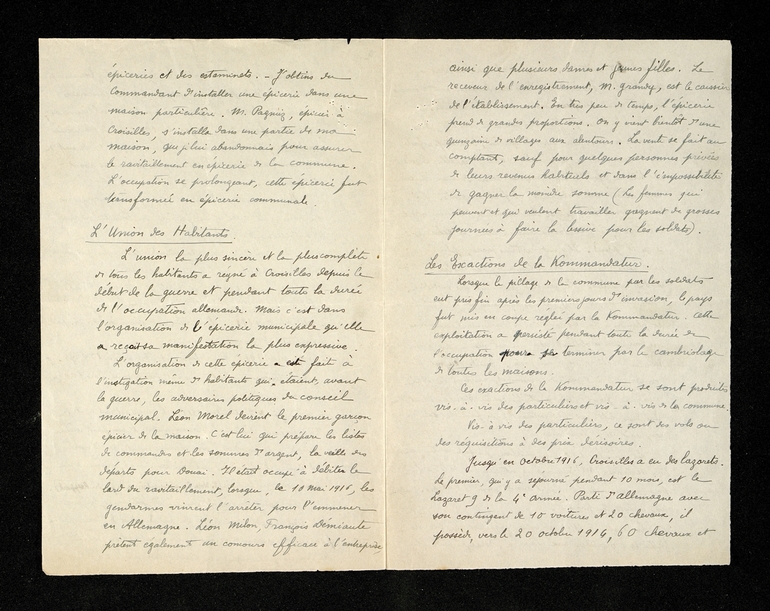 épiceries et des estaminets. – J'obtins du
Commandant d'installer une épicerie dans une
maison particulière. M. Pagniez, épicier à
Croisilles, s'installe dans une partie de ma
maison, que je lui abandonnais pour assurer
le ravitaillement en épicerie de la commune.
L'occupation se prolongeant, cette épicerie fut
transformée en épicerie communale.
L'Union des Habitants.
L'union la plus sincère et la plus complète
de tous les habitants a régné à Croisilles depuis le
début de la guerre et pendant toute la durée
de l'occupation allemande. Mais c'est dans
l'organisation de l'épicerie municipale qu'elle
a reçu sa manifestation la plus expressive.
L'organisation de cette épicerie a été faite à
l'instigation même d'habitants qui étaient, avant
la guerre, les adversaires politiques du conseil
municipal. Léon Morel devient le premier garçon
épicier de la maison. C'est lui qui prépare les listes
de commandes et les sommes d'argent, la veille des
départs pour Douai. Il était occupé à débiter le
lard du ravitaillement, lorsque, le 10 mai 1916, les
gendarmes vinrent l'arrêter pour l'emmener
en Allemagne. Léon Milon, François Démiautte
prêtent également un concours efficace à l'entreprise
ainsi que plusieurs dames et jeunes filles. Le
receveur de l'enregistrement, M. Grandy, est le caissier
de l'établissement. En très peu de temps, l'épicerie
prend de grandes proportions. On y vient bientôt d'une
quinzaine de villages aux alentours. La vente se fait au
comptant, sauf pour quelques personnes privées
de leurs revenus habituels et dans l'impossibilité
de gagner la moindre somme (Les femmes qui
peuvent et qui veulent travailler gagnent de grosses
journées à faire la lessive pour les soldats).
Les Exactions de la Kommandatur.
Lorsque le pillage de la commune par les soldats
eut pris fin après les premiers jours d'invasion, le pays
fut mis en coupe réglée par la Kommandatur. Cette
exploitation a persisté pendant toute la durée de
l'occupation pour se terminer par le cambriolage
de toutes les maisons.
Ces exactions de la Kommandatur se sont produites
vis-à-vis des particuliers et vis-à-vis de la commune.
Vis-à vis des particuliers, ce sont des vols ou
des réquisitions à des prix dérisoires.
Jusqu'en octobre 1916, Croisilles a eu des lazarets.
Le premier, qui y a séjourné pendant 10 mois, est le
Lazaret 9 de la 4e armée. Parti d'Allemagne avec
son contingent de 10 voitures et 20 chevaux, il
possède, vers le 20 octobre 1914, 60 chevaux et